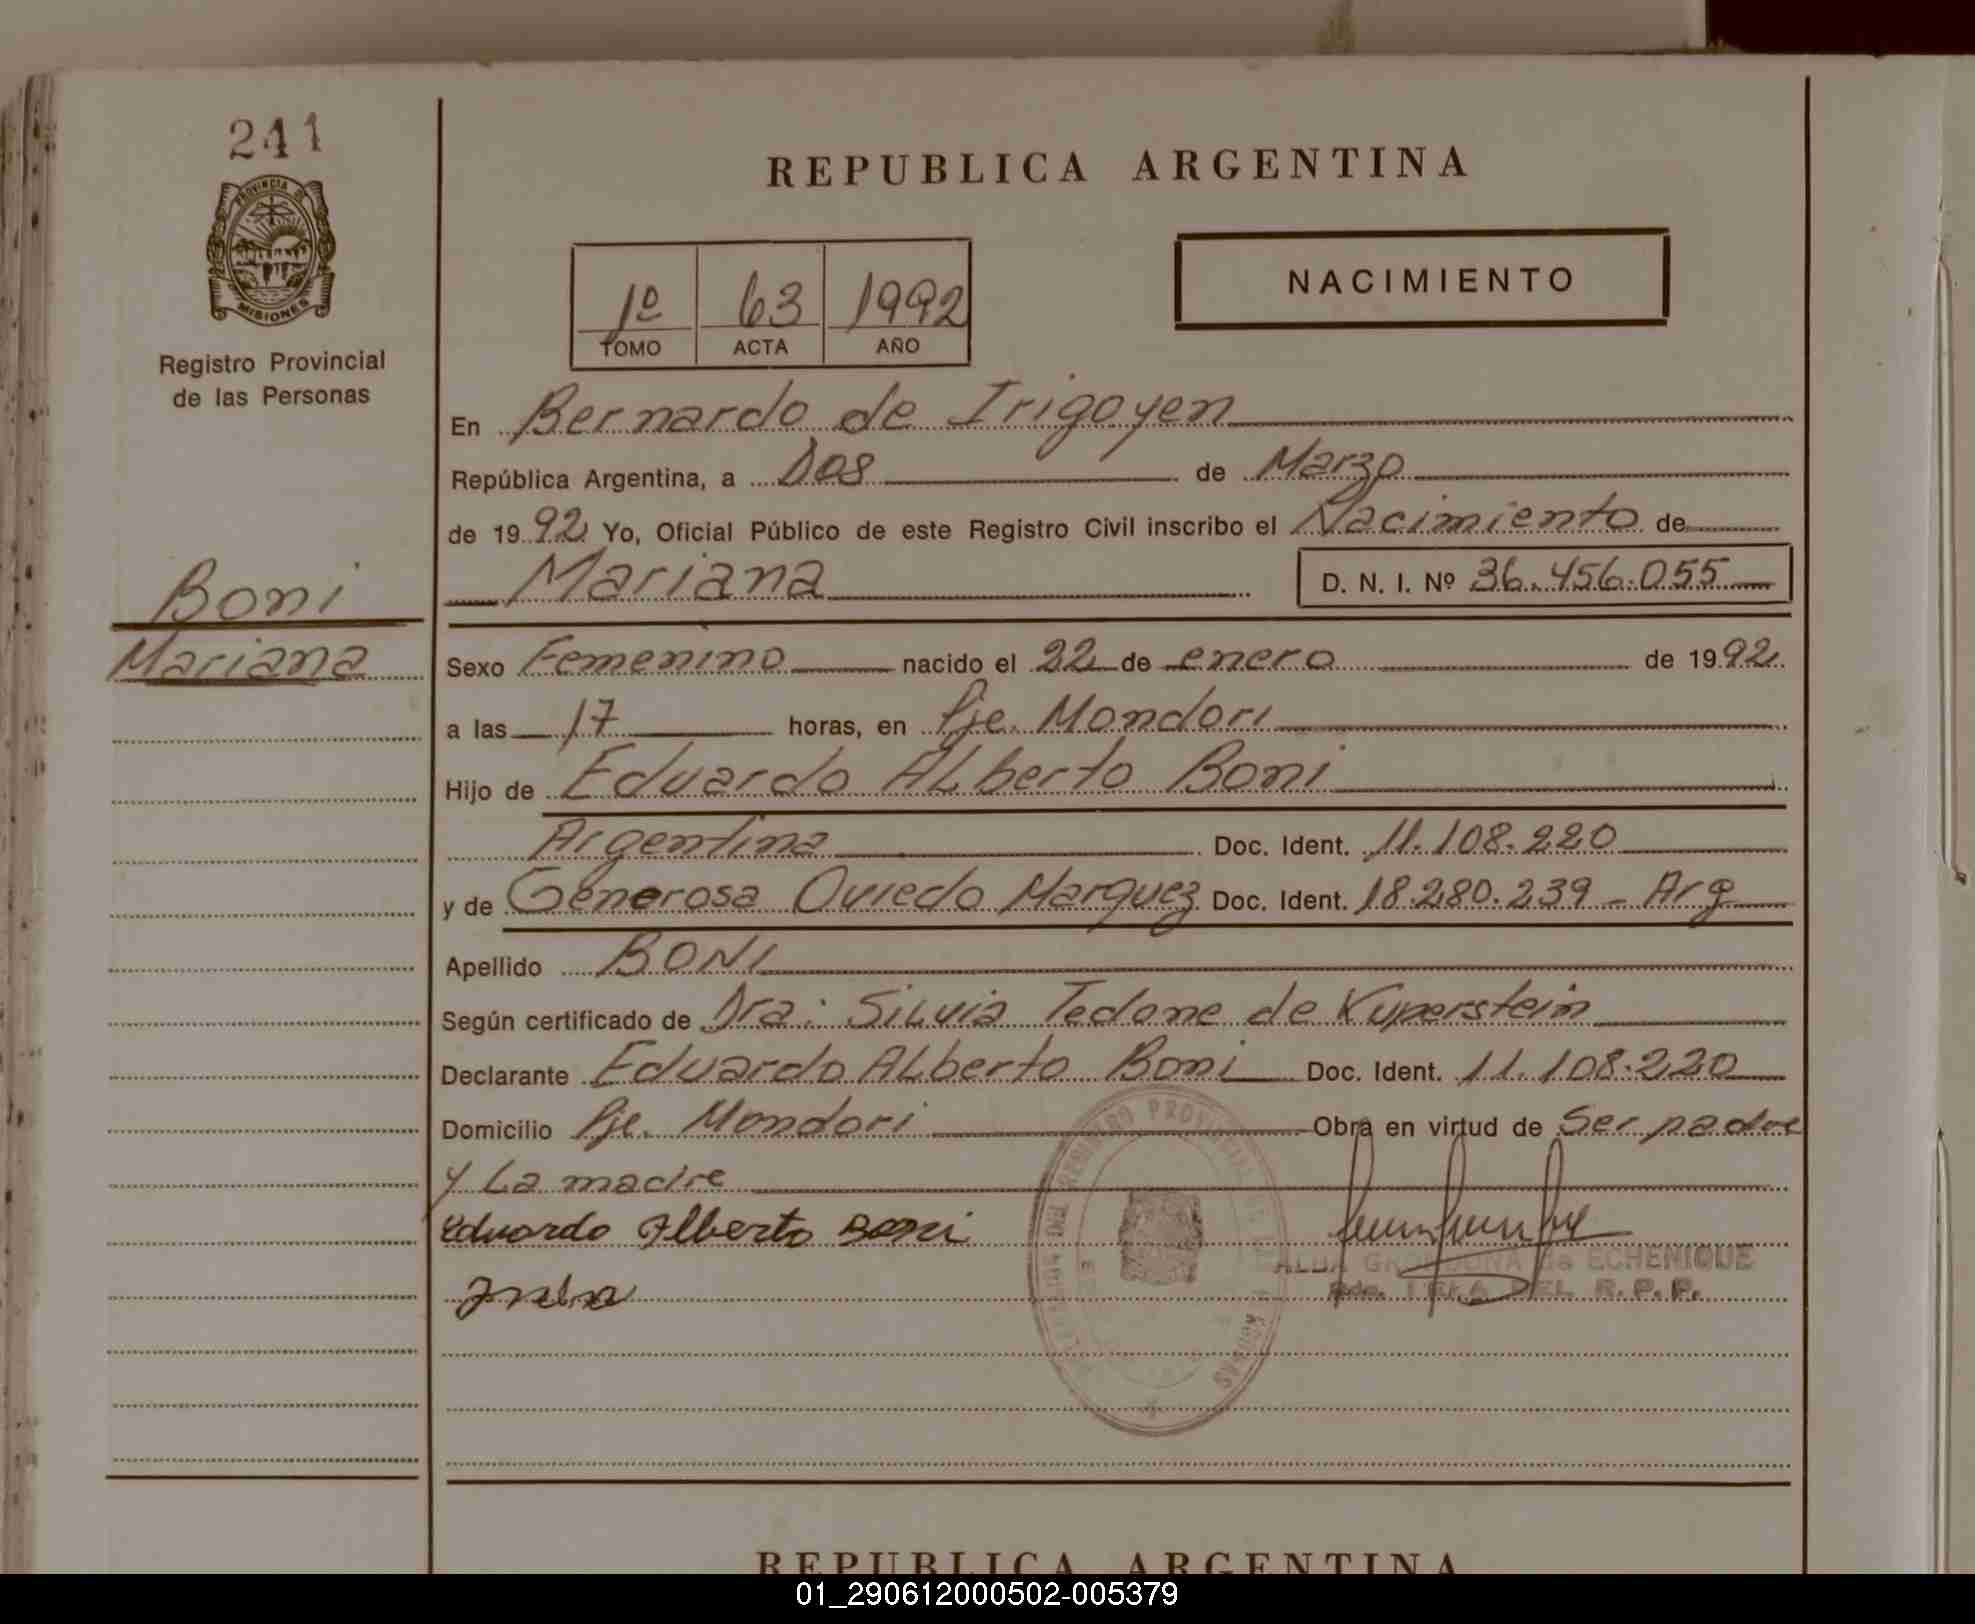 241
PROVINCIA DE
MISIONES
Registro Provincial
de las Personas
REPUBLICA ARGENTINA
1º 63 1992
TOMO ACTA AÑO
NACIMIENTO
En Bernardo de Irigoyen
República Argentina, a Dos de Marzo
de 1992 Yo, Oficial Público de este Registro Civil inscribo el Nacimiento de
Mariana D. N. I. Nº 36.456.055
Boni
Mariana
Sexo Femenino nacido el 22 de enero de 1992
a las 17 horas, en Pje. Mondori
Hijo de Eduardo ALberto Boni
Argentina Doc. Ident. 11.108.220
y de Generosa Oviedo Marquez Doc. Ident. 18.280.239 - Arg
Apellido BONI
Según certificado de Dra: SiLvia Tedone de Kuperstein
Declarante Eduardo ALberto Boni Doc. Ident. 11.108.220
Domicilio Pje. Mondori Obra en virtud de Ser padre
y La madre
Eduardo Alberto Boni
DEL REGISTRO PROVINCIAL DE
ALBA de ECHENIQUE
DEL R. P. P.
REPUBLICA ARGENTINA
01_290612000502-005379